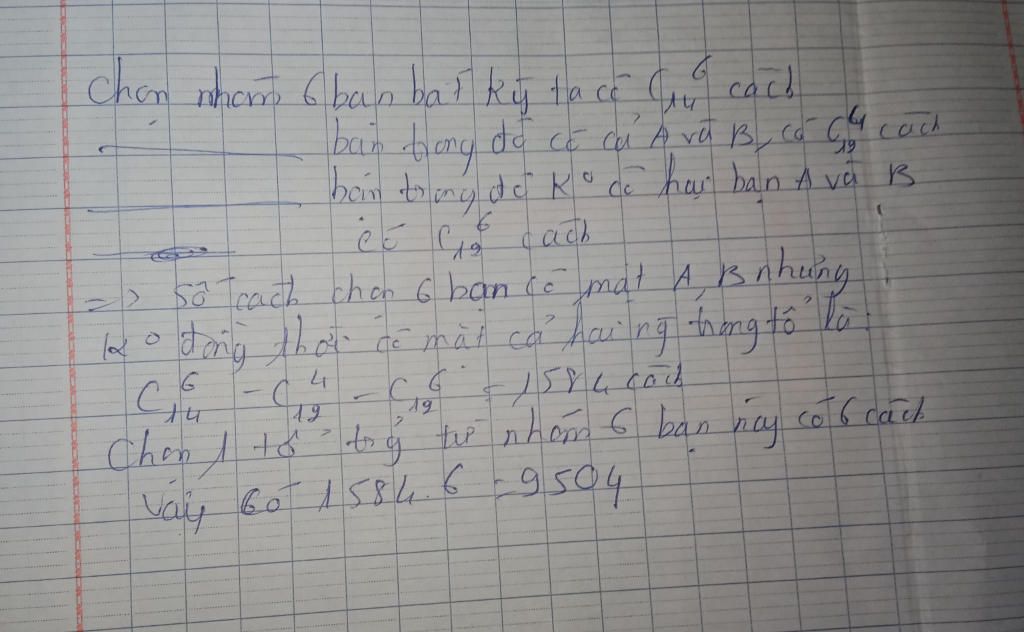 Chọn nhóm 6 bạn bất kỳ ta có C₁₄⁶ cách
bạn trong đó có cả A và B, có C₁₂⁴ cách
bạn trong đó K° có hai bạn A và B
có C₁₂⁶ cách
=> Số cách chọn 6 bạn có mặt A, B nhưng
K° đồng thời có mặt cả hai ng trong tổ là:
C₁₄⁶ - C₁₂⁴ - C₁₂⁶ = 1584 cách
Chọn 1 tổ trg từ nhóm 6 bạn này có 6 cách
Vậy có 1584.6 = 9504